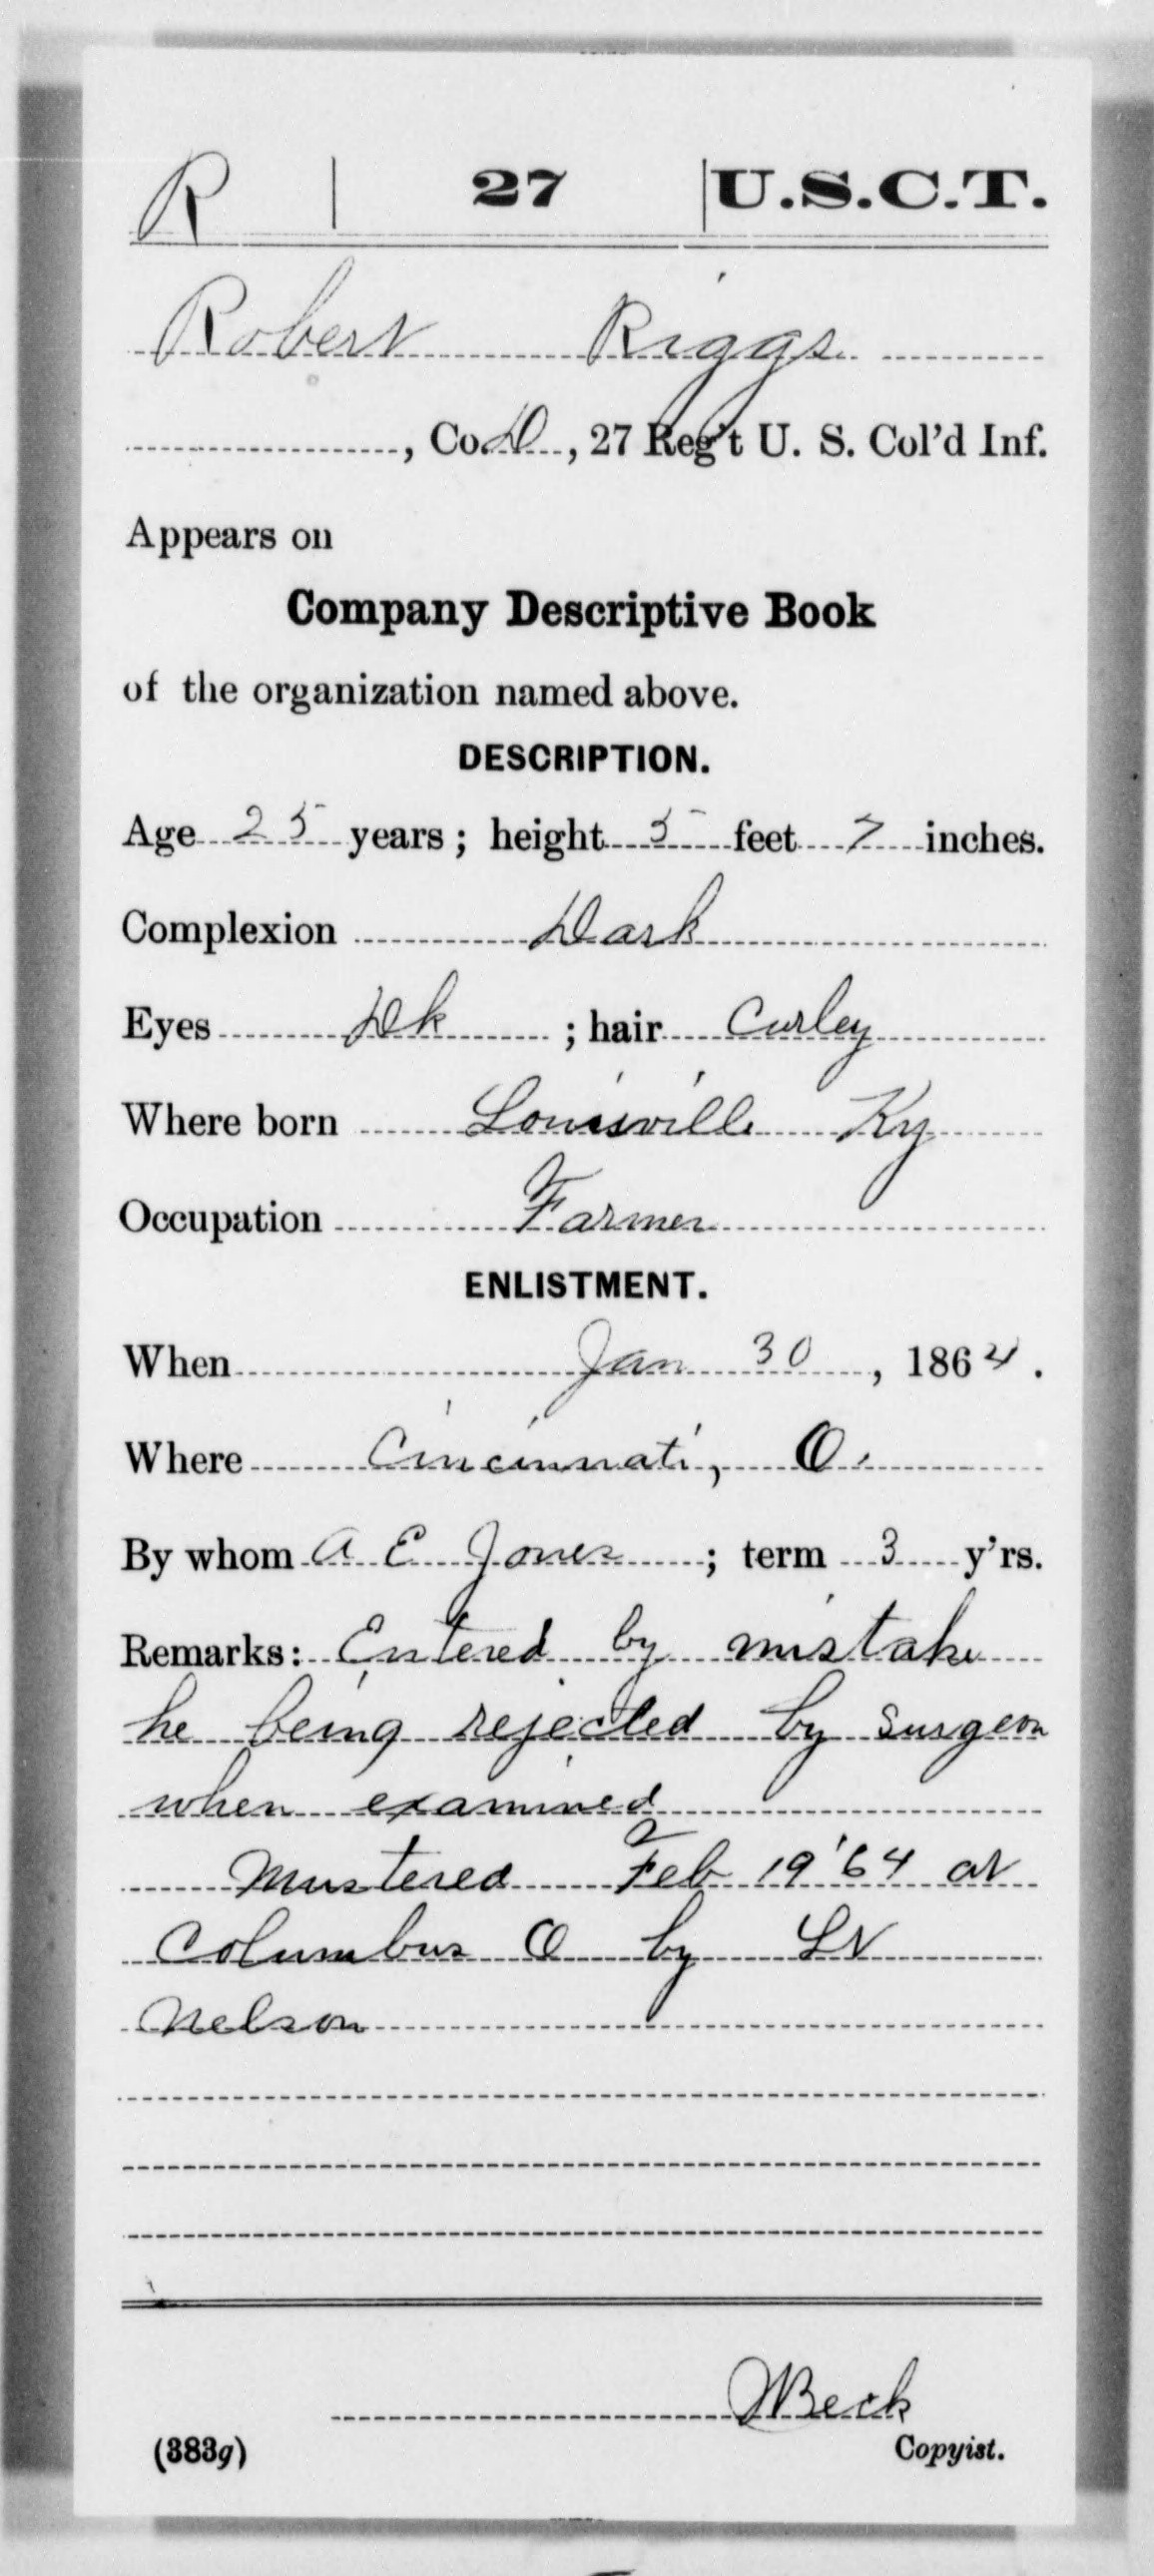 R 27 U.S.C.T.
Robert Riggs
, Co. D, 27 Reg't U. S. Col'd Inf.
Appears on
Company Descriptive Book
of the organization named above.
DESCRIPTION.
Age 25 years; height 5 feet 7 inches.
Complexion Dark
Eyes Dk; hair Curley
Where born Louisville Ky
Occupation Farmer
ENLISTMENT.
When Jan 30, 1864.
Where Cincinnati, O.
By whom A E Jones; term 3 y'rs.
Remarks: Entered by mistake
he being rejected by surgeon
when examined
Mustered Feb 19 '64 at
Columbus O by Lt
Nelson
Beck
(383g) Copyist.